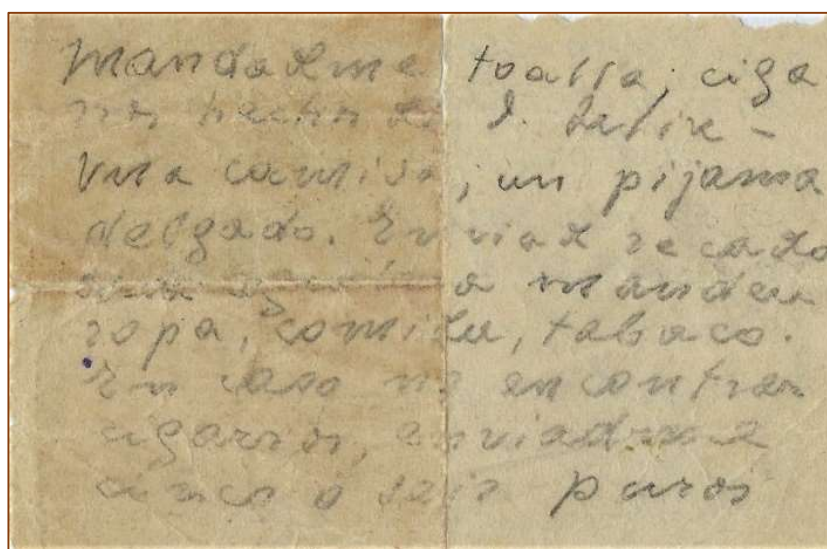 Mandadme toalla, ciga
rros hechos
una camisa, un pijama
delgado. Enviad recado
a manden
ropa, comida, tabaco.
En caso no encontrar
cigarros, enviadme
cinco o seis puros